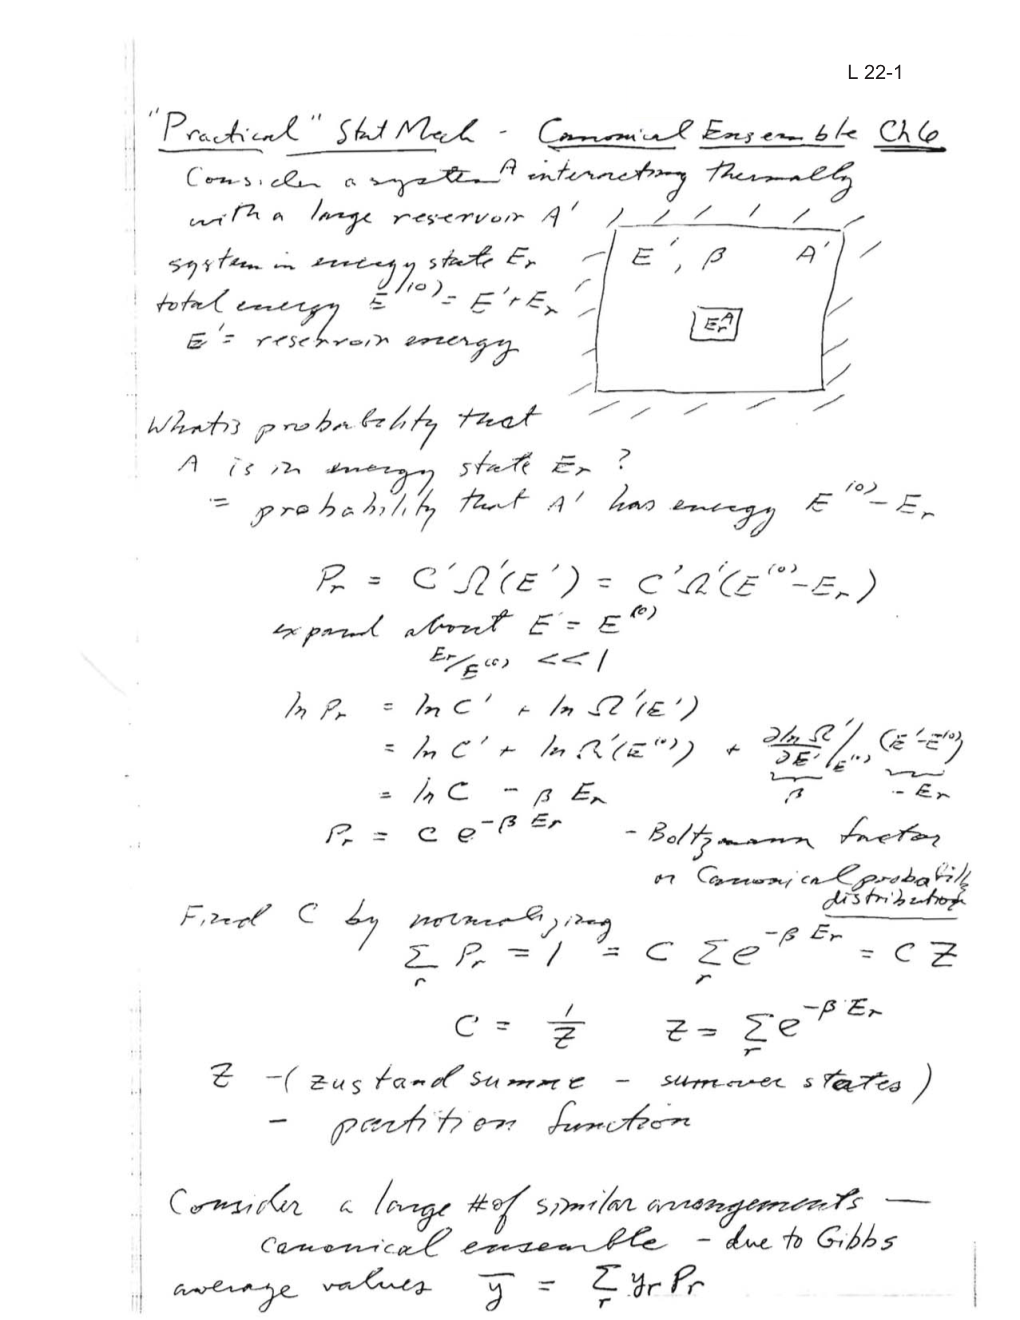 L 22-1
"Practical" Stat Mech - Canonical Ensemble Ch 6
Consider a system A interacting thermally
with a large reservoir A'
system in energy state Er
total energy E^(0) = E' + Er
E' = reservoir energy
E', β A'
Er A
What is probability that
A is in energy state Er ?
= probability that A' has energy E^(0) - Er
Pr = C'Ω'(E') = C'Ω'(E^(0) - Er)
expand about E' = E^(0)
Er/E^(0) << 1
ln Pr = ln C' + ln Ω'(E')
= ln C' + ln Ω'(E^(0)) + ∂ln Ω'/∂E' |E^(0) (E' - E^(0))
= ln C - β Er β - Er
Pr = C e^-β Er - Boltzmann factor
or Canonical probability
distribution
Find C by normalizing
Σr Pr = 1 = C Σr e^-β Er = C Z
C = 1/Z Z = Σr e^-β Er
Z - (zustand summe - sum over states)
- partition function
Consider a large # of similar arrangements —
canonical ensemble - due to Gibbs
average values y̅ = Σr yr Pr